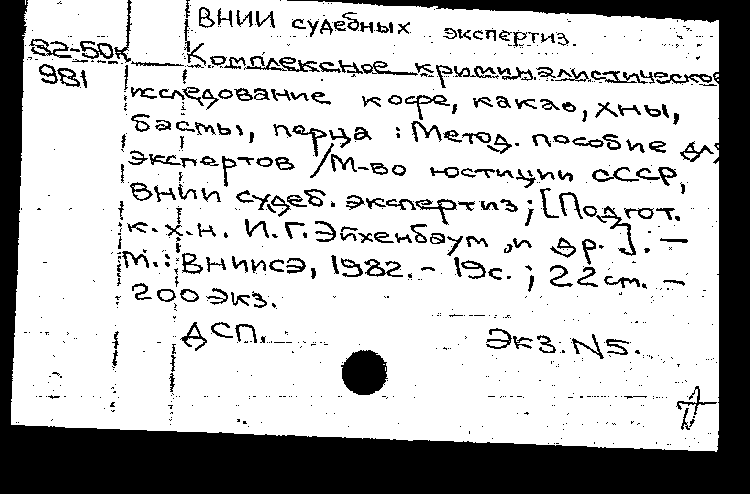 ВНИИ судебных экспертиз.
82-50к Комплексное криминалистическое
981
исследование кофе, какао, хны,
басмы, перца : Метод. пособие для
экспертов / М-во юстиции СССР,
ВНИИ судеб. экспертиз ; [Подгот.
к.х.н. И.Г. Эйхенбаум и др.]. –
М.: ВНИИСЭ, 1982. – 19с. ; 22 см. –
200 экз.
ДСП. Экз. N5.